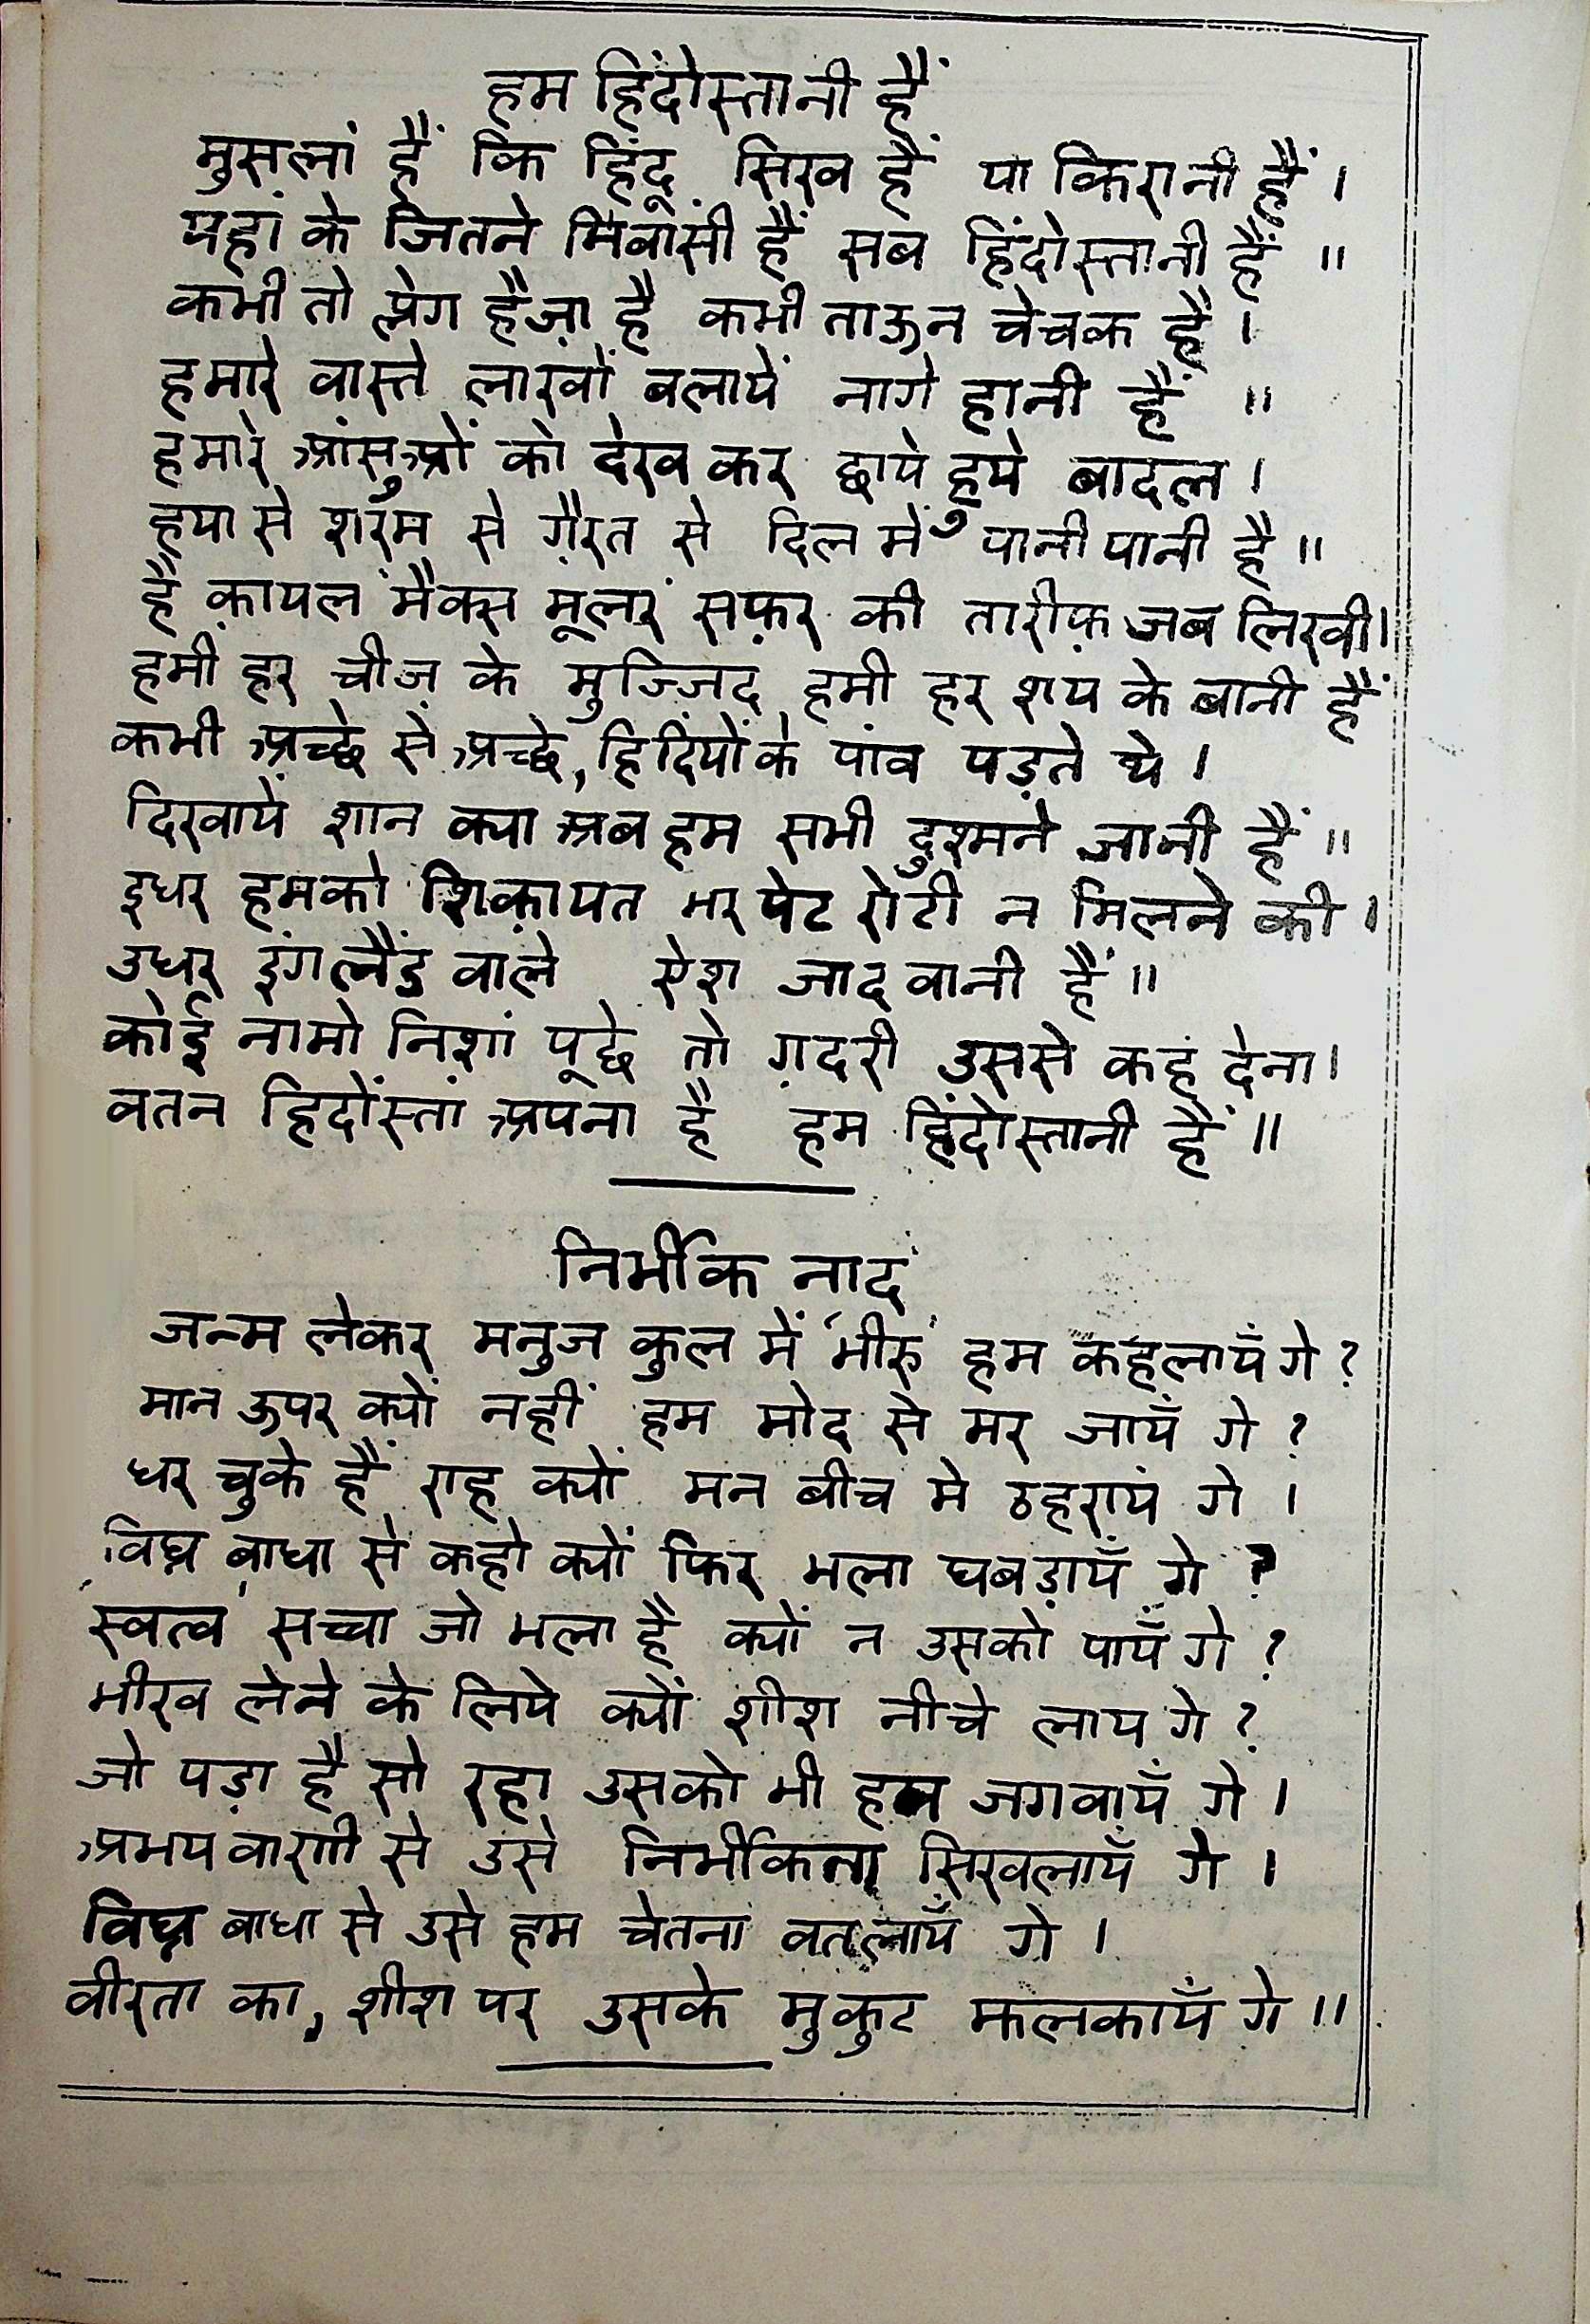 हम हिंदोस्तानी हैं
मुसलां हैं कि हिंदू सिख हैं या किरानी हैं ।
यहां के जितने निवासी हैं सब हिंदोस्तानी हैं ॥
कभी तो प्लेग हैज़ा है कभी ताऊन चेचक है ।
हमारे वास्ते लाखों बलायें नागे हानी हैं ॥
हमारे आंसुओं को देख कर छाये हुये बादल ।
हया से शरम से ग़ैरत से दिल में पानी पानी है ॥
हैं क़ायल मैक्स मूलर सफ़र की तारीफ़ जब लिखी।
हमी हर चीज़ के मुज्जिद हमी हर शय के बानी हैं
कभी अच्छे से अच्छे, हिंदियों के पांव पड़ते थे ।
दिखायें शान क्या अब हम सभी दुश्मने जानी हैं ॥
इधर हमको शिक़ायत भर पेट रोटी न मिलने की ।
उधर इंगलैंड वाले ऐश जाद वानी हैं ॥
कोई नामो निशां पूछे तो ग़दरी उससे कह देना।
वतन हिदोंस्तां अपना है हम हिंदोस्तानी हैं ॥
निर्भीक नाद
जन्म लेकर मनुज कुल में 'भीरु' हम कहलायँ गे ?
मान ऊपर क्यों नहीं हम मोद से मर जायँ गे ?
धर चुके हैं राह क्यों मन बीच मे ठहरायं गे ।
विघ्न बाधा से कहो क्यों फिर भला घबड़ायँ गे ?
'स्वत्व' सच्चा जो भला है क्यों न उसको पायँ गे ?
भीख लेने के लिये क्यों शीश नीचे लाय गे ?
जो पड़ा है सो रहा उसको भी हम जगवायँ गे ।
अभय वाणी से उसे निर्भीकता सिखलायँ गे ।
विघ्न बाधा से उसे हम चेतना वतलायँ गे ।
वीरता का, शीश पर उसके मुकुट झलकायँ गे ॥